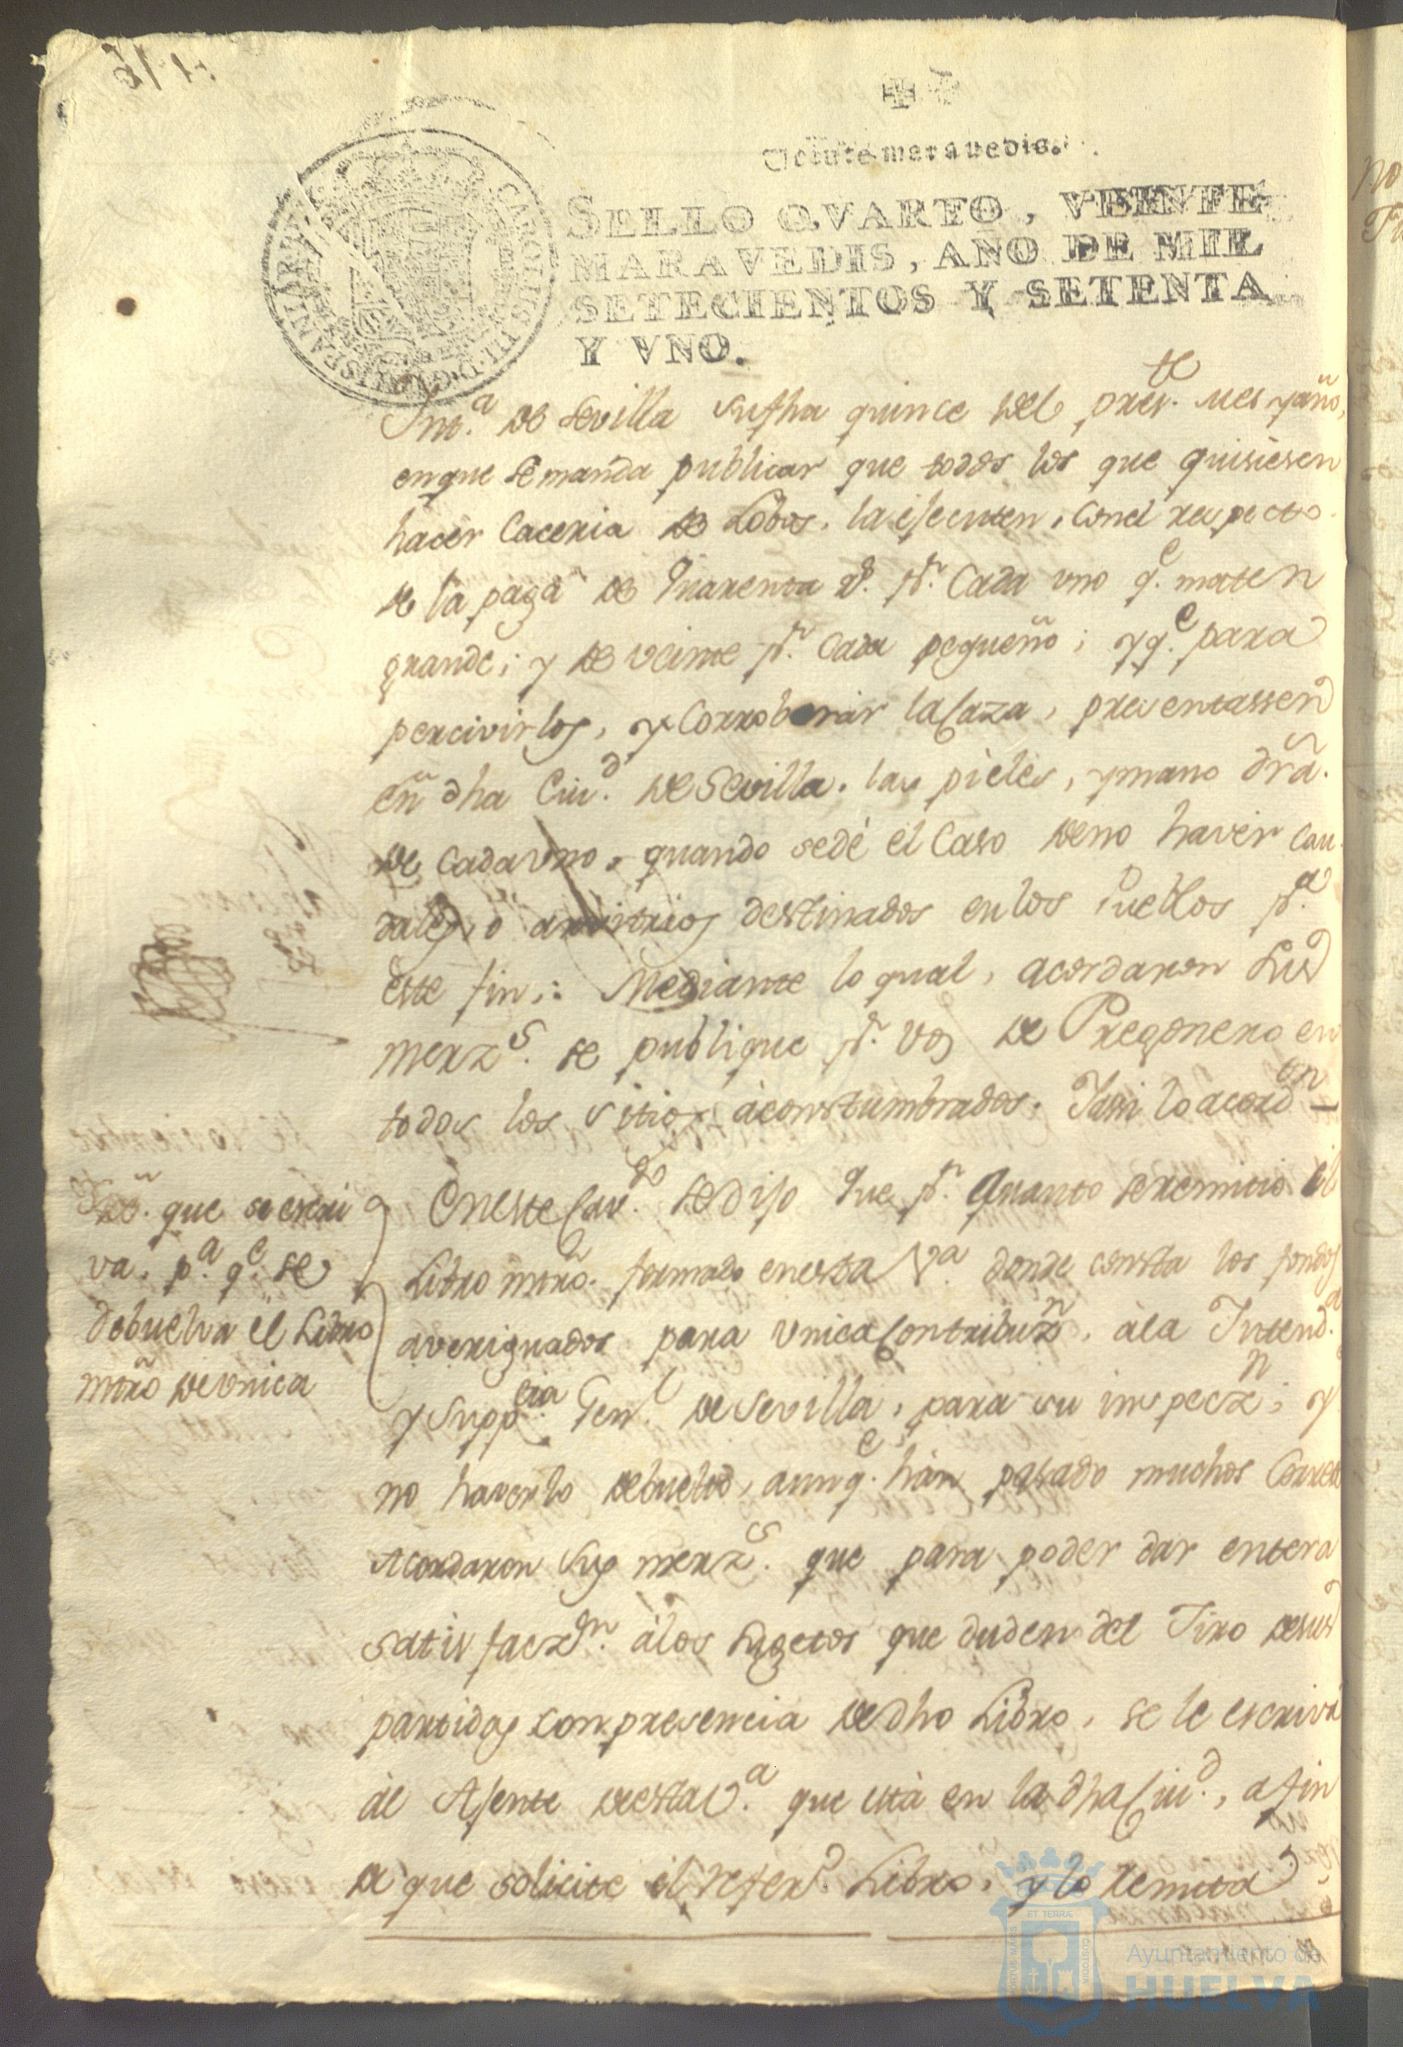 Veinte maravedis.
SELLO QVARTO, VEINTE
MARAVEDIS, AÑO DE MIL
SETECIENTOS Y SETENTA
Y VNO.
CAROLUS III D G HISPANIAR
Int.ª de Sevilla su fha quince del pres.te mes y año,
en que se manda publicar que todos los que quisiesen
hacer Caceria de Lobos, la ejecuten, con el respecto
de la paga de quarenta r.s p.r Cada uno q.e maten
grande; y de veinte p.r Cada pequeño; y q.e para
percivirlos, y Corroborar la Caza, presentassen
en dha Ciu.d de Sevilla, las pieles, y mano dra.
de Cada uno, quando se dé el Caso de no haver Cau-
dales, o arvitrios destinados en los Pueblos p.ª
este fin: Mediante lo qual, acordaron sus
merz.s se publique p.r Vos de Pregonero en
todos los sitios acostumbrados. Y assi lo acord.on
que se escri
va, p.ª q.e se
debuelva el Libro
mro de Unica
En este Cav.do se dijo que p.r quanto se remitio el
Libro mro. formado en esta V.ª donde consta los fondos
averiguados para Unica Contribuz.n, à la Intend.ª
y Supp.cia Gen.l de Sevilla, para su inspecz.n; y
no haverlo debuelto, aunq.e hàn passado muchos Correos
Acordaron Sus merz.s que para poder dar entera
satisfacz.on à los sugetos que duden del Tiro de sus
partidas con presencia de dho Libro, se le escriva
àl Ajente de esta V.ª que està en la dha Ciu.d, a fin
de que solicite el refer.do Libro, y lo remita
ET TERRÆ
CUSTODIA
Ayuntamiento de
HUELVA